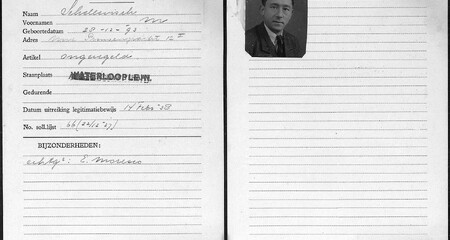 Naam
Voornamen M
Geboortedatum 28-12-93
Adres
Artikel ongeregeld
Standplaats WATERLOOPLEIN.
Gedurende
Datum uitreiking legitimatiebewijs 14 Febr. '38
No. soll.lijst 66 (22/12 '37)
BIJZONDERHEDEN:
echtgte: E. Moreno